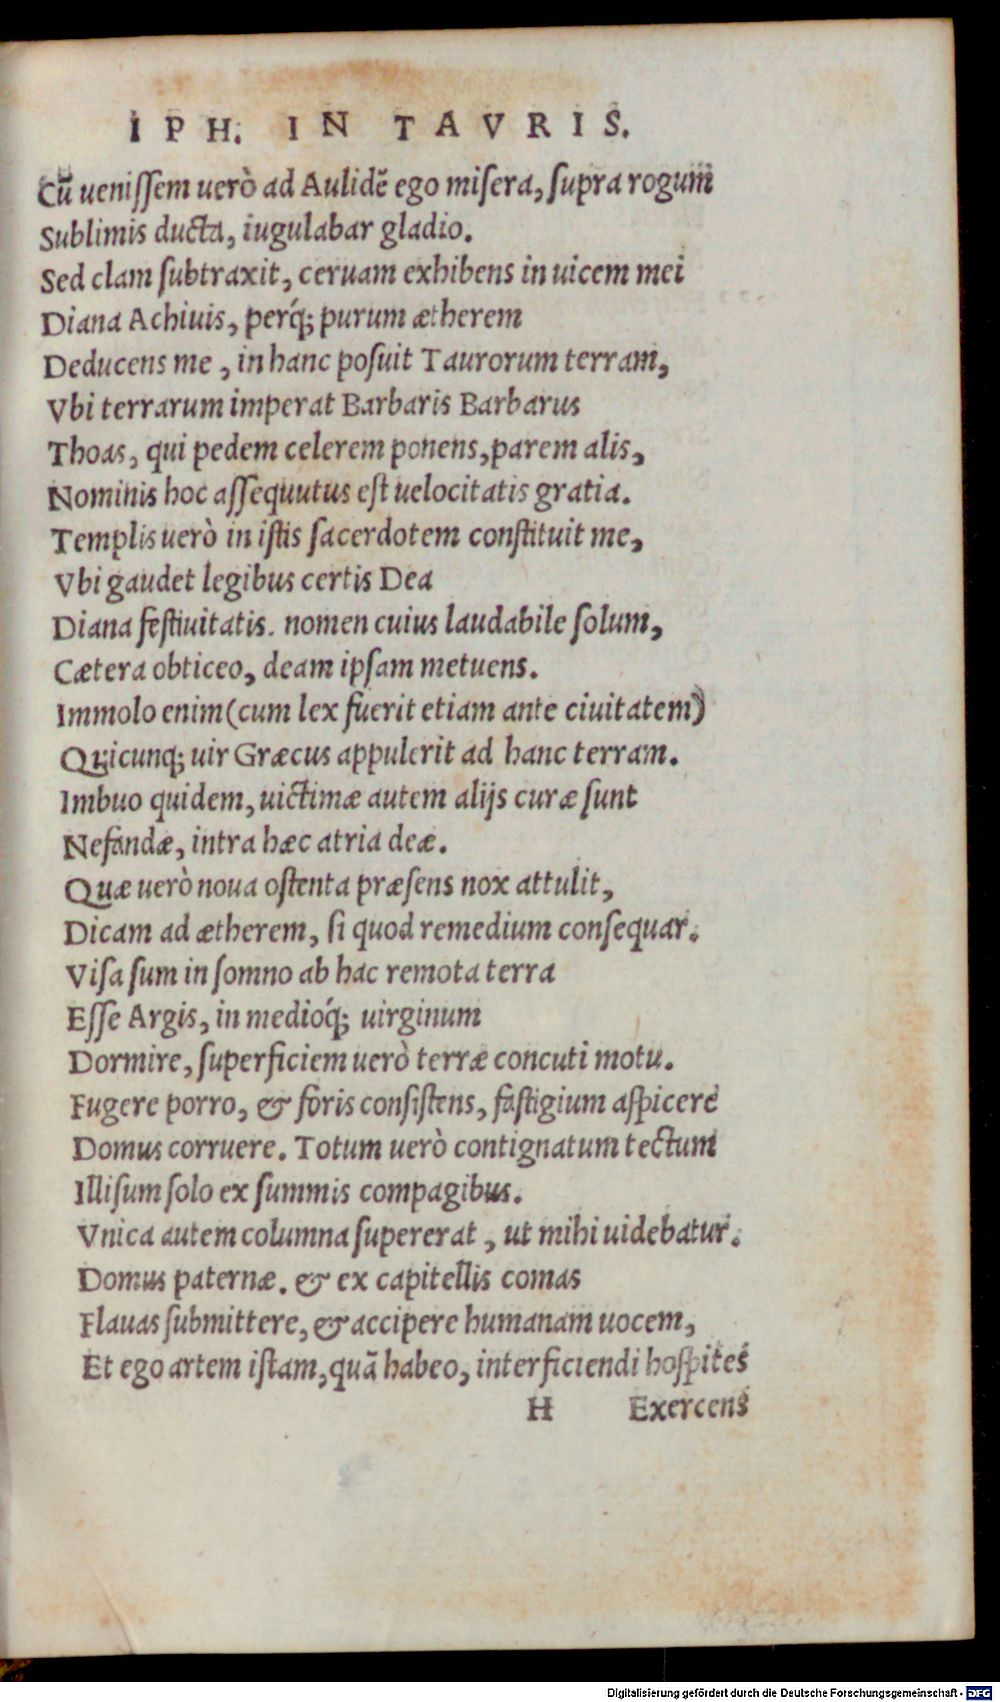 IPH. IN TAVRIS.
Cū uenissem uerò ad Aulidē ego misera, supra rogum
Sublimis ducta, iugulabar gladio.
Sed clam subtraxit, ceruam exhibens in uicem mei
Diana Achiuis, perq́; purum ætherem
Deducens me, in hanc posuit Taurorum terram,
Vbi terrarum imperat Barbaris Barbarus
Thoas, qui pedem celerem ponens, parem alis,
Nominis hoc assequutus est uelocitatis gratia.
Templis uerò in istis sacerdotem constituit me,
Vbi gaudet legibus certis Dea
Diana festiuitatis. nomen cuius laudabile solum,
Cætera obticeo, deam ipsam metuens.
Immolo enim (cum lex fuerit etiam ante ciuitatem)
Quicunq; uir Græcus appulerit ad hanc terram.
Imbuo quidem, uictimæ autem alijs curæ sunt
Nefandæ, intra hæc atria deæ.
Quæ uerò noua ostenta præsens nox attulit,
Dicam ad ætherem, si quod remedium consequar.
Visa sum in somno ab hac remota terra
Esse Argis, in medioq́; uirginum
Dormire, superficiem uerò terræ concuti motu.
Fugere porro, & foris consistens, fastigium aspicere
Domus corruere. Totum uerò contignatum tectum
Illisum solo ex summis compagibus.
Vnica autem columna supererat, ut mihi uidebatur.
Domus paternæ. & ex capitellis comas
Flauas submittere, & accipere humanam uocem,
Et ego artem istam, quā habeo, interficiendi hospites
H Exercens
Digitalisierung gefördert durch die Deutsche Forschungsgemeinschaft - DFG